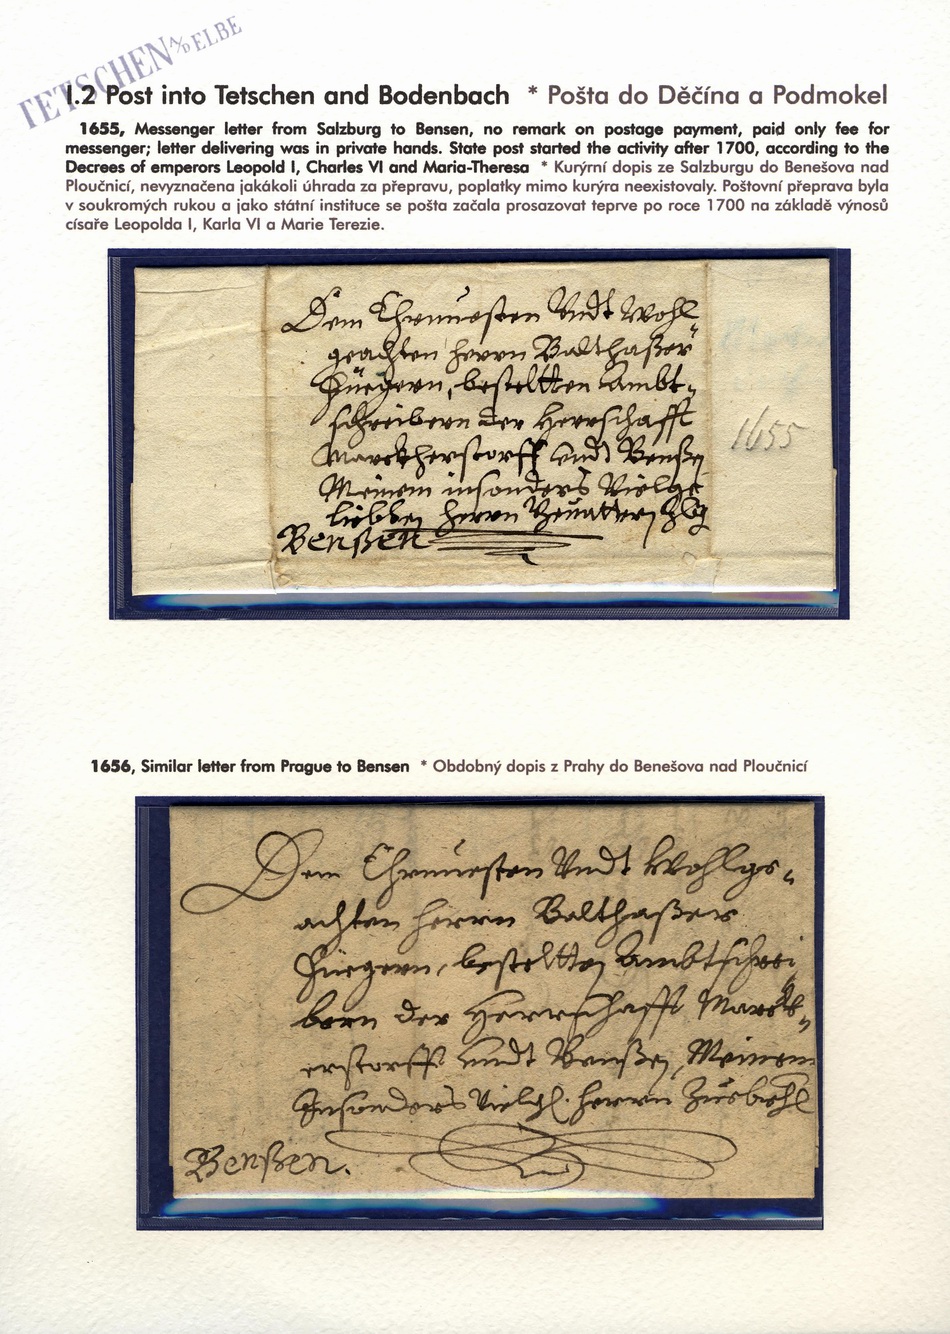 TETSCHEN A/D ELBE
I.2 Post into Tetschen and Bodenbach * Pošta do Děčína a Podmokel
1655, Messenger letter from Salzburg to Bensen, no remark on postage payment, paid only fee for
messenger; letter delivering was in private hands. State post started the activity after 1700, according to the
Decrees of emperors Leopold I, Charles VI and Maria-Theresa * Kurýrní dopis ze Salzburgu do Benešova nad
Ploučnicí, nevyznačena jakákoli úhrada za přepravu, poplatky mimo kurýra neexistovaly. Poštovní přeprava byla
v soukromých rukou a jako státní instituce se pošta začala prosazovat teprve po roce 1700 na základě výnosů
císaře Leopolda I, Karla VI a Marie Terezie.
Dem Ehrnuesten Undt Wohl
geachten herrn Balthaßer
bestelten Ambt-
schreibern der Herrschafft
Marckherstorff undt Benßen
Meinem insonders Vielge
liebten herrn
Benßen
1655
1656, Similar letter from Prague to Bensen * Obdobný dopis z Prahy do Benešova nad Ploučnicí
Dem Ehrnuesten Undt Wohlge-
achten herrn Balthaßer
bestelten Ambtschrei
bern der Herrschafft Marck-
erstorff undt Benßen, Meinem
Insonders Vielgl. herrn
Benßen.